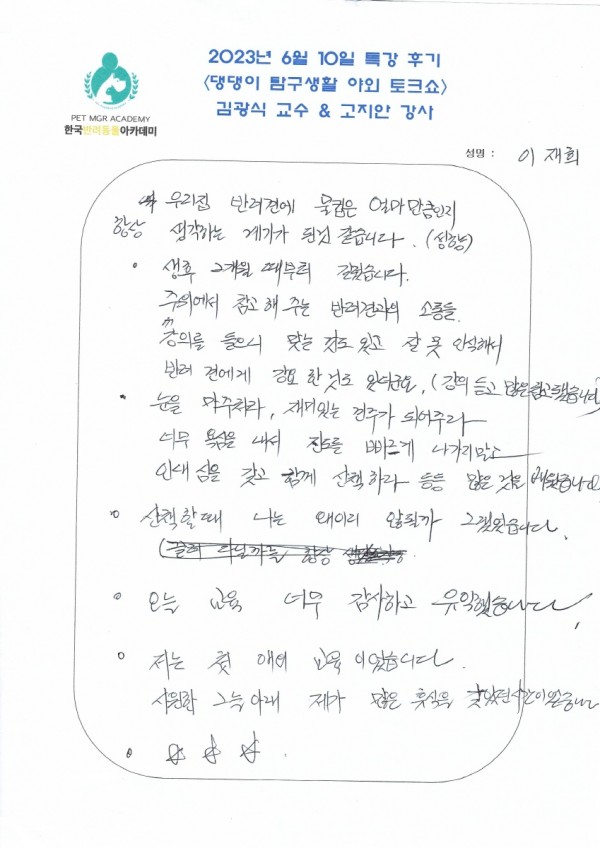 2023년 6월 10일 특강 후기
<댕댕이 탐구생활 야외 토크쇼>
김광식 교수 & 고지안 강사
PET MGR ACADEMY
한국반려동물아카데미
성명 : 이재희
우리집 반려견에 물컵은 얼마만큼인지
항상 생각하는 계기가 된것 같습니다.
생후 2개월 때부터 길렀습니다.
주위에서 참고해 주는 반려견과의 소통들.
강의를 들으니 맞는 것도 있고 잘 못 인식해서
반려견에게 강요 한 것도 있더군요. (강의 듣고 많은
눈을 마주쳐라, 재미있는 견주가 되어주라
너무 욕심을 내서 진도를 빠르게 나가지말고
인내심을 갖고 함께 산책하라 등등 많은 것을 배웠습니다.
산책할때 나는 왜이리 않될까 그랬었습니다.
오늘 교육 너무 감사하고 유익했습니다.
저는 첫 야외 교육이었습니다.
시원한 그늘아래 제가 많은 휴식을 갖았던시간이었습니다